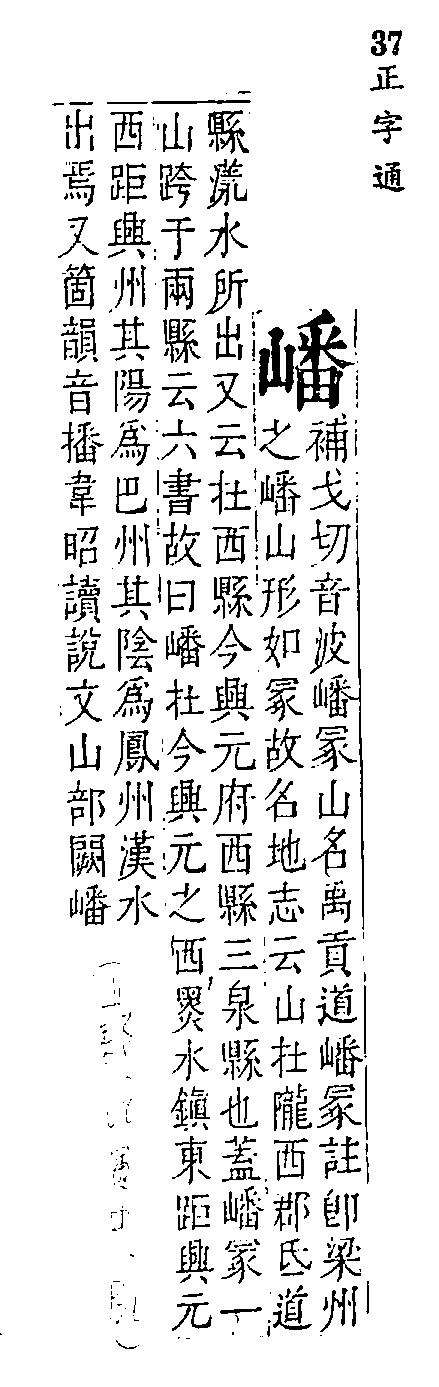 37
正字通
嶓
補戈切音波嶓冢山名禹貢道嶓冢註卽梁州
之嶓山形如冢故名地志云山在隴西郡氐道
縣漾水所出又云在西縣今興元府西縣三泉縣也蓋嶓冢一
山跨于兩縣云六書故曰嶓在今興元之西水鎭東距興元
西距興州其陽爲巴州其陰爲鳳州漢水
出焉又箇韻音播韋昭讀說文山部闕嶓